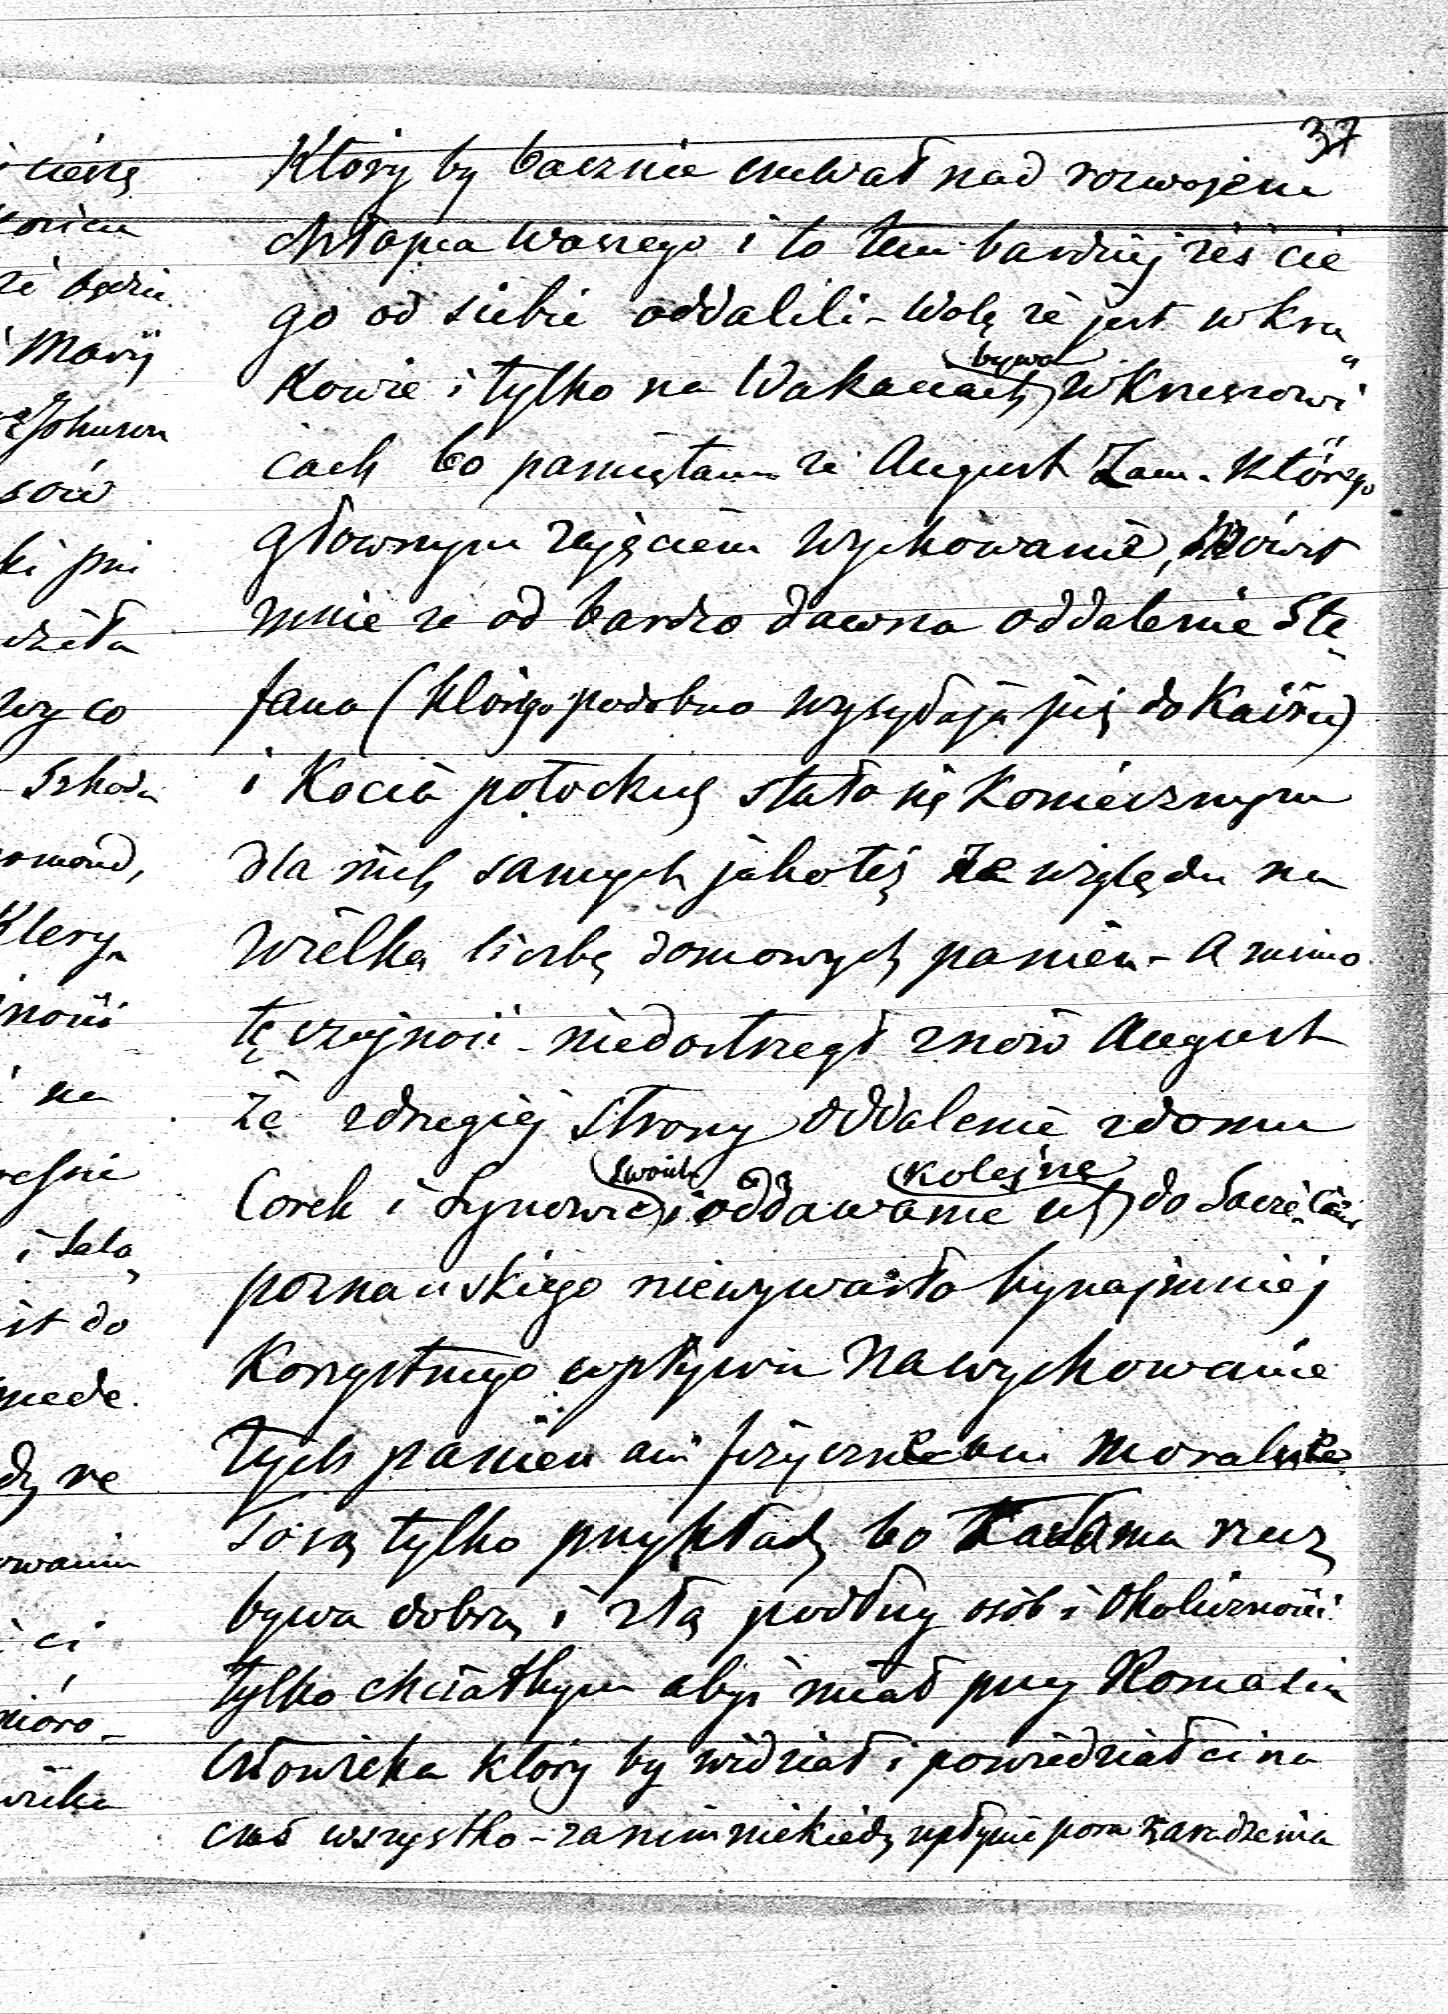 37
Który by bacznie czuwał nad rozwojem
chłopca waszego i to tem bardziej żeś cie
go od siebie oddalili - Wolę że jest w Kra„
kowie i tylko na Wakaciach bywa w Krzeszowi
cach bo pamiętam że August Zam. którego
głownym zajęciem wychowanie, mówił
mnie że od bardzo dawna oddalenie Ste„
fana (którego podobno wysyłają już do Kairu)
i Kocia potockieg stało się Koniecznym
dla nich samych jakoteż ze względu na
wielką liczbę domowych panien - A mimo
tę czujność - niedostrzegł znów August
że z drugiej Strony oddalenie z domu
Corek i Synowic swoich i oddawanie ich kolejne do Sacré Coeur
poznanskiego niewywarło bynajmniej
Korzystnego wpływu na wychowanie
tych panien ani fizycznie ani moralnie
To są tylko przykłady bo Każda ma rzecz
bywa dobrą i złą podług osób i Okoliczności
tylko chciałbym abyś miał przy Romasiu
człowieka który by widział i powiedział ci na
czas wszystko - zanim niekiedy upłynie pora zaradzenia
i cieszą
że będzie
i Maryi
Johnson
sów
ki pm
wy co
Szkoda
omond,
Klery„
na
i Sala„
it do
mede
dy re
owaniu
i ci
nióro-